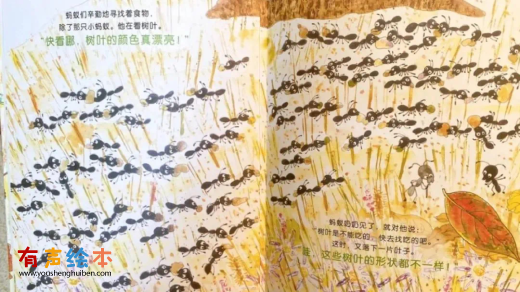 蚂蚁们辛勤地寻找着食物，
除了那只小蚂蚁。他在看树叶。
“快看哪，树叶的颜色真漂亮！”
蚂蚁奶奶见了，就对他说：
“树叶是不能吃的，快去找吃的吧。
这时，又落下一片叶子。
“哇，这些树叶的形状都不一样！”
有声绘本
www.youshenghuiben.com